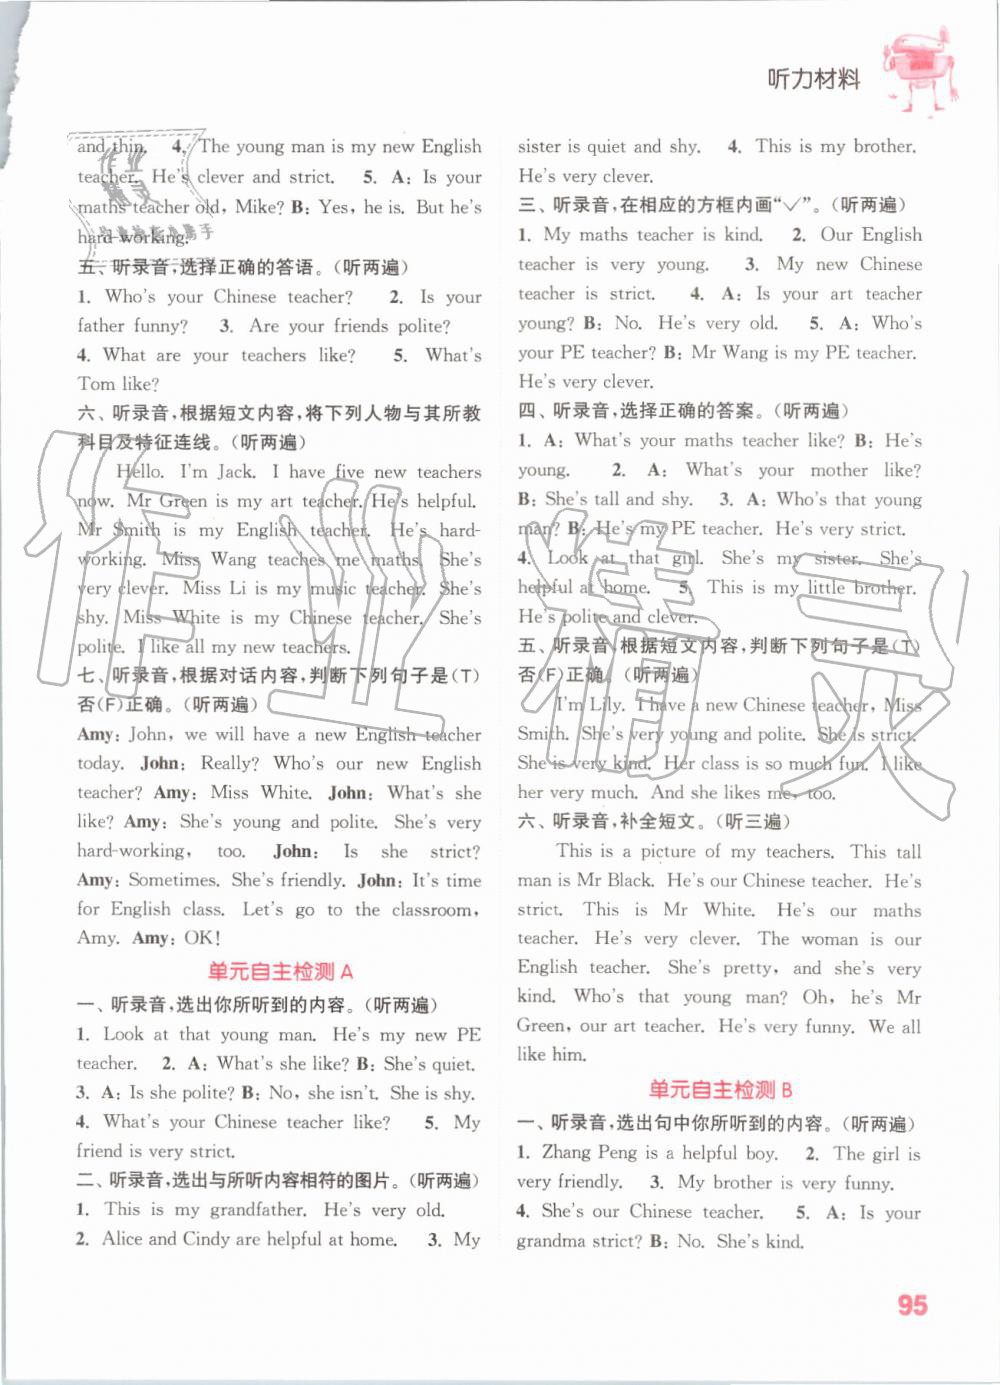 听力材料
and thin. 4. The young man is my new English
teacher. He's clever and strict. 5. A: Is your
maths teacher old, Mike? B: Yes, he is. But he's
hard-working.
五、听录音,选择正确的答语。(听两遍)
1. Who's your Chinese teacher? 2. Is your
father funny? 3. Are your friends polite?
4. What are your teachers like? 5. What's
Tom like?
六、听录音,根据短文内容,将下列人物与其所教
科目及特征连线。(听两遍)
Hello. I'm Jack. I have five new teachers
now. Mr Green is my art teacher. He's helpful.
Mr Smith is my English teacher. He's hard-
working. Miss Wang teaches me maths. She's
very clever. Miss Li is my music teacher. She's
shy. Miss White is my Chinese teacher. She's
polite. I like all my new teachers.
七、听录音,根据对话内容,判断下列句子是(T)
否(F)正确。(听两遍)
Amy: John, we will have a new English teacher
today. John: Really? Who's our new English
teacher? Amy: Miss White. John: What's she
like? Amy: She's young and polite. She's very
hard-working, too. John: Is she strict?
Amy: Sometimes. She's friendly. John: It's time
for English class. Let's go to the classroom,
Amy. Amy: OK!
单元自主检测 A
一、听录音,选出你所听到的内容。(听两遍)
1. Look at that young man. He's my new PE
teacher. 2. A: What's she like? B: She's quiet.
3. A: Is she polite? B: No, she isn't. She is shy.
4. What's your Chinese teacher like? 5. My
friend is very strict.
二、听录音,选出与所听内容相符的图片。(听两遍)
1. This is my grandfather. He's very old.
2. Alice and Cindy are helpful at home. 3. My
sister is quiet and shy. 4. This is my brother.
He's very clever.
三、听录音,在相应的方框内画“✓”。(听两遍)
1. My maths teacher is kind. 2. Our English
teacher is very young. 3. My new Chinese
teacher is strict. 4. A: Is your art teacher
young? B: No. He's very old. 5. A: Who's
your PE teacher? B: Mr Wang is my PE teacher.
He's very clever.
四、听录音,选择正确的答案。(听两遍)
1. A: What's your maths teacher like? B: He's
young. 2. A: What's your mother like?
B: She's tall and shy. 3. A: Who's that young
man? B: He's my PE teacher. He's very strict.
4. Look at that girl. She's my sister. She's
helpful at home. 5. This is my little brother.
He's polite and clever.
五、听录音,根据短文内容,判断下列句子是(T)
否(F)正确。(听两遍)
I'm Lily. I have a new Chinese teacher, Miss
Smith. She's very young and polite. She is strict.
She is very kind. Her class is so much fun. I like
her very much. And she likes me, too.
六、听录音,补全短文。(听三遍)
This is a picture of my teachers. This tall
man is Mr Black. He's our Chinese teacher. He's
strict. This is Mr White. He's our maths
teacher. He's very clever. The woman is our
English teacher. She's pretty, and she's very
kind. Who's that young man? Oh, he's Mr
Green, our art teacher. He's very funny. We all
like him.
单元自主检测 B
一、听录音,选出句中你所听到的内容。(听两遍)
1. Zhang Peng is a helpful boy. 2. The girl is
very friendly. 3. My brother is very funny.
4. She's our Chinese teacher. 5. A: Is your
grandma strict? B: No. She's kind.
95
作业精灵